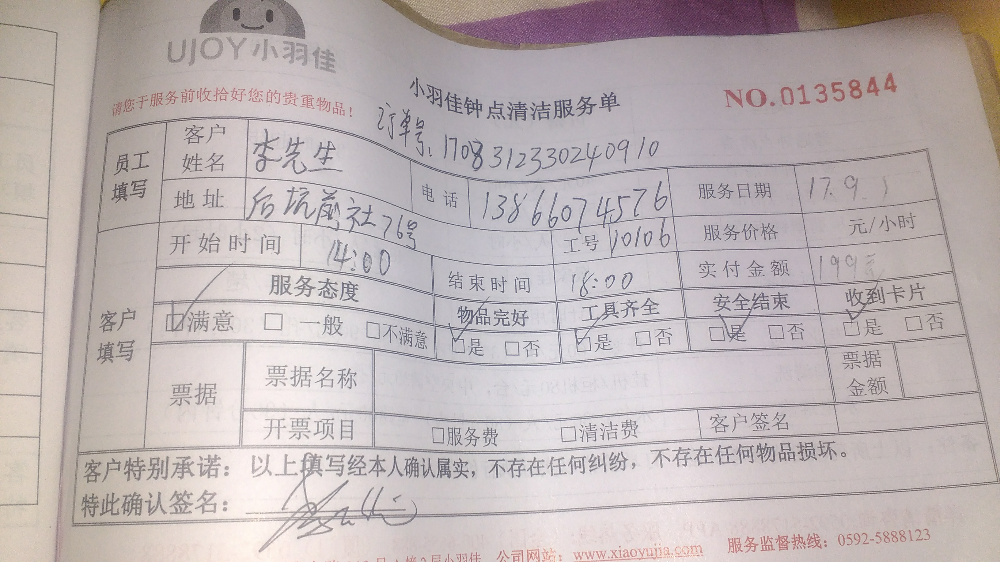 UJOY小羽佳
请您于服务前收拾好您的贵重物品！
小羽佳钟点清洁服务单
NO.0135844
订单号：1708312330240910
员工填写 客户姓名 李先生 电话 13866074576 服务日期 17.9.1
地址 后坑前社76号 工号 10106 服务价格 元/小时
客户填写 开始时间 14:00 结束时间 18:00 实付金额 199元
服务态度 物品完好 工具齐全 安全结束 收到卡片
☑满意 □一般 □不满意 ☑是 □否 ☑是 □否 ☑是 □否 ☑是 □否
票据 票据名称 票据金额
开票项目 □服务费 □清洁费 客户签名
客户特别承诺：以上填写经本人确认属实，不存在任何纠纷，不存在任何物品损坏。
特此确认签名：
楼2层小羽佳 公司网站：www.xiaoyujia.com 服务监督热线：0592-5888123